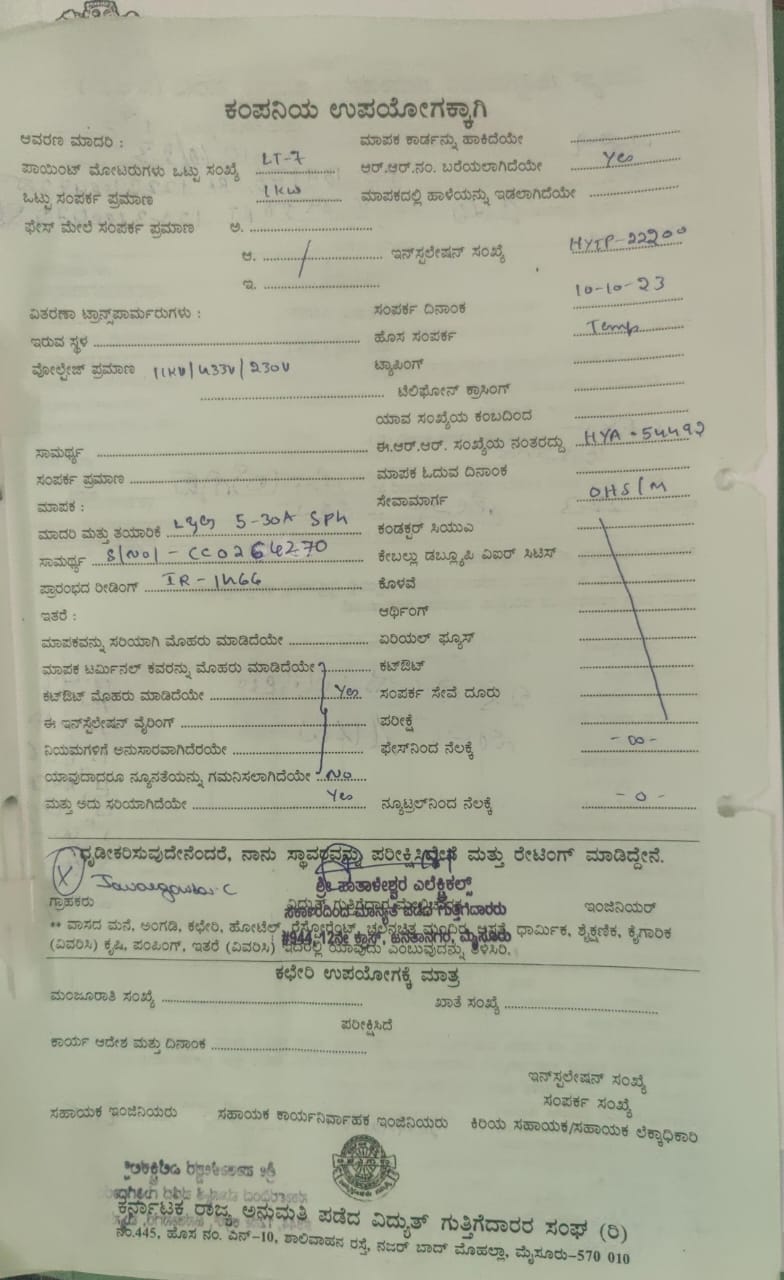 ಕಂಪನಿಯ ಉಪಯೋಗಕ್ಕಾಗಿ
ಆವರಣ ಮಾದರಿ : ಮಾಪಕ ಕಾರ್ಡನ್ನು ಹಾಕಿದೆಯೇ
ಪಾಯಿಂಟ್ ಮೋಟರುಗಳು ಒಟ್ಟು ಸಂಖ್ಯೆ LT-7 ಆರ್.ಆರ್.ನಂ. ಬರೆಯಲಾಗಿದೆಯೇ Yes
ಒಟ್ಟು ಸಂಪರ್ಕ ಪ್ರಮಾಣ 1kw ಮಾಪಕದಲ್ಲಿ ಹಾಳೆಯನ್ನು ಇಡಲಾಗಿದೆಯೇ
ಫೇಸ್ ಮೇಲೆ ಸಂಪರ್ಕ ಪ್ರಮಾಣ ಅ.
ಆ. ಇನ್‌ಸ್ಟಲೇಷನ್ ಸಂಖ್ಯೆ HYTP-22200
ಇ.
ವಿತರಣಾ ಟ್ರಾನ್ಸ್‌ಪಾರ್ಮರುಗಳು : ಸಂಪರ್ಕ ದಿನಾಂಕ 10-10-23
ಇರುವ ಸ್ಥಳ ಹೊಸ ಸಂಪರ್ಕ Temp
ವೋಲ್ಟೇಜ್ ಪ್ರಮಾಣ 11KV/433V/230V ಟ್ಯಾಪಿಂಗ್
ಟೆಲಿಫೋನ್ ಕ್ರಾಸಿಂಗ್
ಯಾವ ಸಂಖ್ಯೆಯ ಕಂಬದಿಂದ
ಸಾಮರ್ಥ್ಯ ಈ.ಆರ್.ಆರ್. ಸಂಖ್ಯೆಯ ನಂತರದ್ದು HYA-54492
ಸಂಪರ್ಕ ಪ್ರಮಾಣ ಮಾಪಕ ಓದುವ ದಿನಾಂಕ
ಮಾಪಕ : ಸೇವಾಮಾರ್ಗ OHS/M
ಮಾದರಿ ಮತ್ತು ತಯಾರಿಕೆ 5-30A SPh ಕಂಡಕ್ಟರ್ ಸಿಯುಎ
ಸಾಮರ್ಥ್ಯ S/No/- CC0264270 ಕೇಬಲ್ಲು ಡಬ್ಲ್ಯೂಪಿ ವಿಐಆರ್ ಸಿಟಿಸ್
ಪ್ರಾರಂಭದ ರೀಡಿಂಗ್ IR-1466 ಕೊಳವೆ
ಇತರೆ : ಆರ್ಥಿಂಗ್
ಮಾಪಕವನ್ನು ಸರಿಯಾಗಿ ಮೊಹರು ಮಾಡಿದೆಯೇ ಏರಿಯಲ್ ಫ್ಯೂಸ್
ಮಾಪಕ ಟರ್ಮಿನಲ್ ಕವರನ್ನು ಮೊಹರು ಮಾಡಿದೆಯೇ ಕಟ್‌ಔಟ್
ಕಟ್‌ಔಟ್ ಮೊಹರು ಮಾಡಿದೆಯೇ Yes ಸಂಪರ್ಕ ಸೇವೆ ದೂರು
ಈ ಇನ್‌ಸ್ಟಲೇಷನ್ ವೈರಿಂಗ್ ಪರೀಕ್ಷೆ
ನಿಯಮಗಳಿಗೆ ಅನುಸಾರವಾಗಿದೆರಯೇ ಫೇಸ್‌ನಿಂದ ನೆಲಕ್ಕೆ -∞-
ಯಾವುದಾದರೂ ನ್ಯೂನತೆಯನ್ನು ಗಮನಿಸಲಾಗಿದೆಯೇ No
ಮತ್ತು ಅದು ಸರಿಯಾಗಿದೆಯೇ Yes ನ್ಯೂಟ್ರಲ್‌ನಿಂದ ನೆಲಕ್ಕೆ -0-
ದೃಢೀಕರಿಸುವುದೇನೆಂದರೆ, ನಾನು ಸ್ಥಾವರವನ್ನು ಪರೀಕ್ಷಿಸಿದ್ದೇನೆ ಮತ್ತು ರೇಟಿಂಗ್ ಮಾಡಿದ್ದೇನೆ.
X
ಶ್ರೀ ಪಾತಾಳೇಶ್ವರ ಎಲೆಕ್ಟ್ರಿಕಲ್ಸ್
ಗ್ರಾಹಕರು ಇಂಜಿನಿಯರ್
ಸರ್ಕಾರದಿಂದ ಮಾನ್ಯತೆ ಪಡೆದ ಗುತ್ತಿಗೆದಾರರು
** ವಾಸದ ಮನೆ, ಅಂಗಡಿ, ಕಛೇರಿ, ಹೋಟೆಲ್, ರೆಸ್ಟೋರೆಂಟ್, ಚಲನಚಿತ್ರ ಮಂದಿರ, ಆಸ್ಪತ್ರೆ, ಧಾರ್ಮಿಕ, ಶೈಕ್ಷಣಿಕ, ಕೈಗಾರಿಕ
#944, 12ನೇ ಕ್ರಾಸ್, ಜನತಾನಗರ, ಮೈಸೂರು
(ವಿವರಿಸಿ) ಕೃಷಿ, ಪಂಪಿಂಗ್, ಇತರೆ (ವಿವರಿಸಿ) ಇದರಲ್ಲಿ ಯಾವುದು ಎಂಬುವುದನ್ನು ತಿಳಿಸಿರಿ.
ಕಛೇರಿ ಉಪಯೋಗಕ್ಕೆ ಮಾತ್ರ
ಮಂಜೂರಾತಿ ಸಂಖ್ಯೆ ಖಾತೆ ಸಂಖ್ಯೆ
ಪರೀಕ್ಷಿಸಿದೆ
ಕಾರ್ಯ ಆದೇಶ ಮತ್ತು ದಿನಾಂಕ
ಇನ್‌ಸ್ಟಲೇಷನ್ ಸಂಖ್ಯೆ
ಸಂಪರ್ಕ ಸಂಖ್ಯೆ
ಸಹಾಯಕ ಇಂಜಿನಿಯರು ಸಹಾಯಕ ಕಾರ್ಯನಿರ್ವಾಹಕ ಇಂಜಿನಿಯರು ಕಿರಿಯ ಸಹಾಯಕ/ಸಹಾಯಕ ಲೆಕ್ಕಾಧಿಕಾರಿ
ಕರ್ನಾಟಕ ರಾಜ್ಯ ಅನುಮತಿ ಪಡೆದ ವಿದ್ಯುತ್ ಗುತ್ತಿಗೆದಾರರ ಸಂಘ (ರಿ)
ನಂ.445, ಹೊಸ ನಂ. ಎನ್-10, ಶಾಲಿವಾಹನ ರಸ್ತೆ, ನಜರ್ ಬಾದ್ ಮೊಹಲ್ಲಾ, ಮೈಸೂರು-570 010